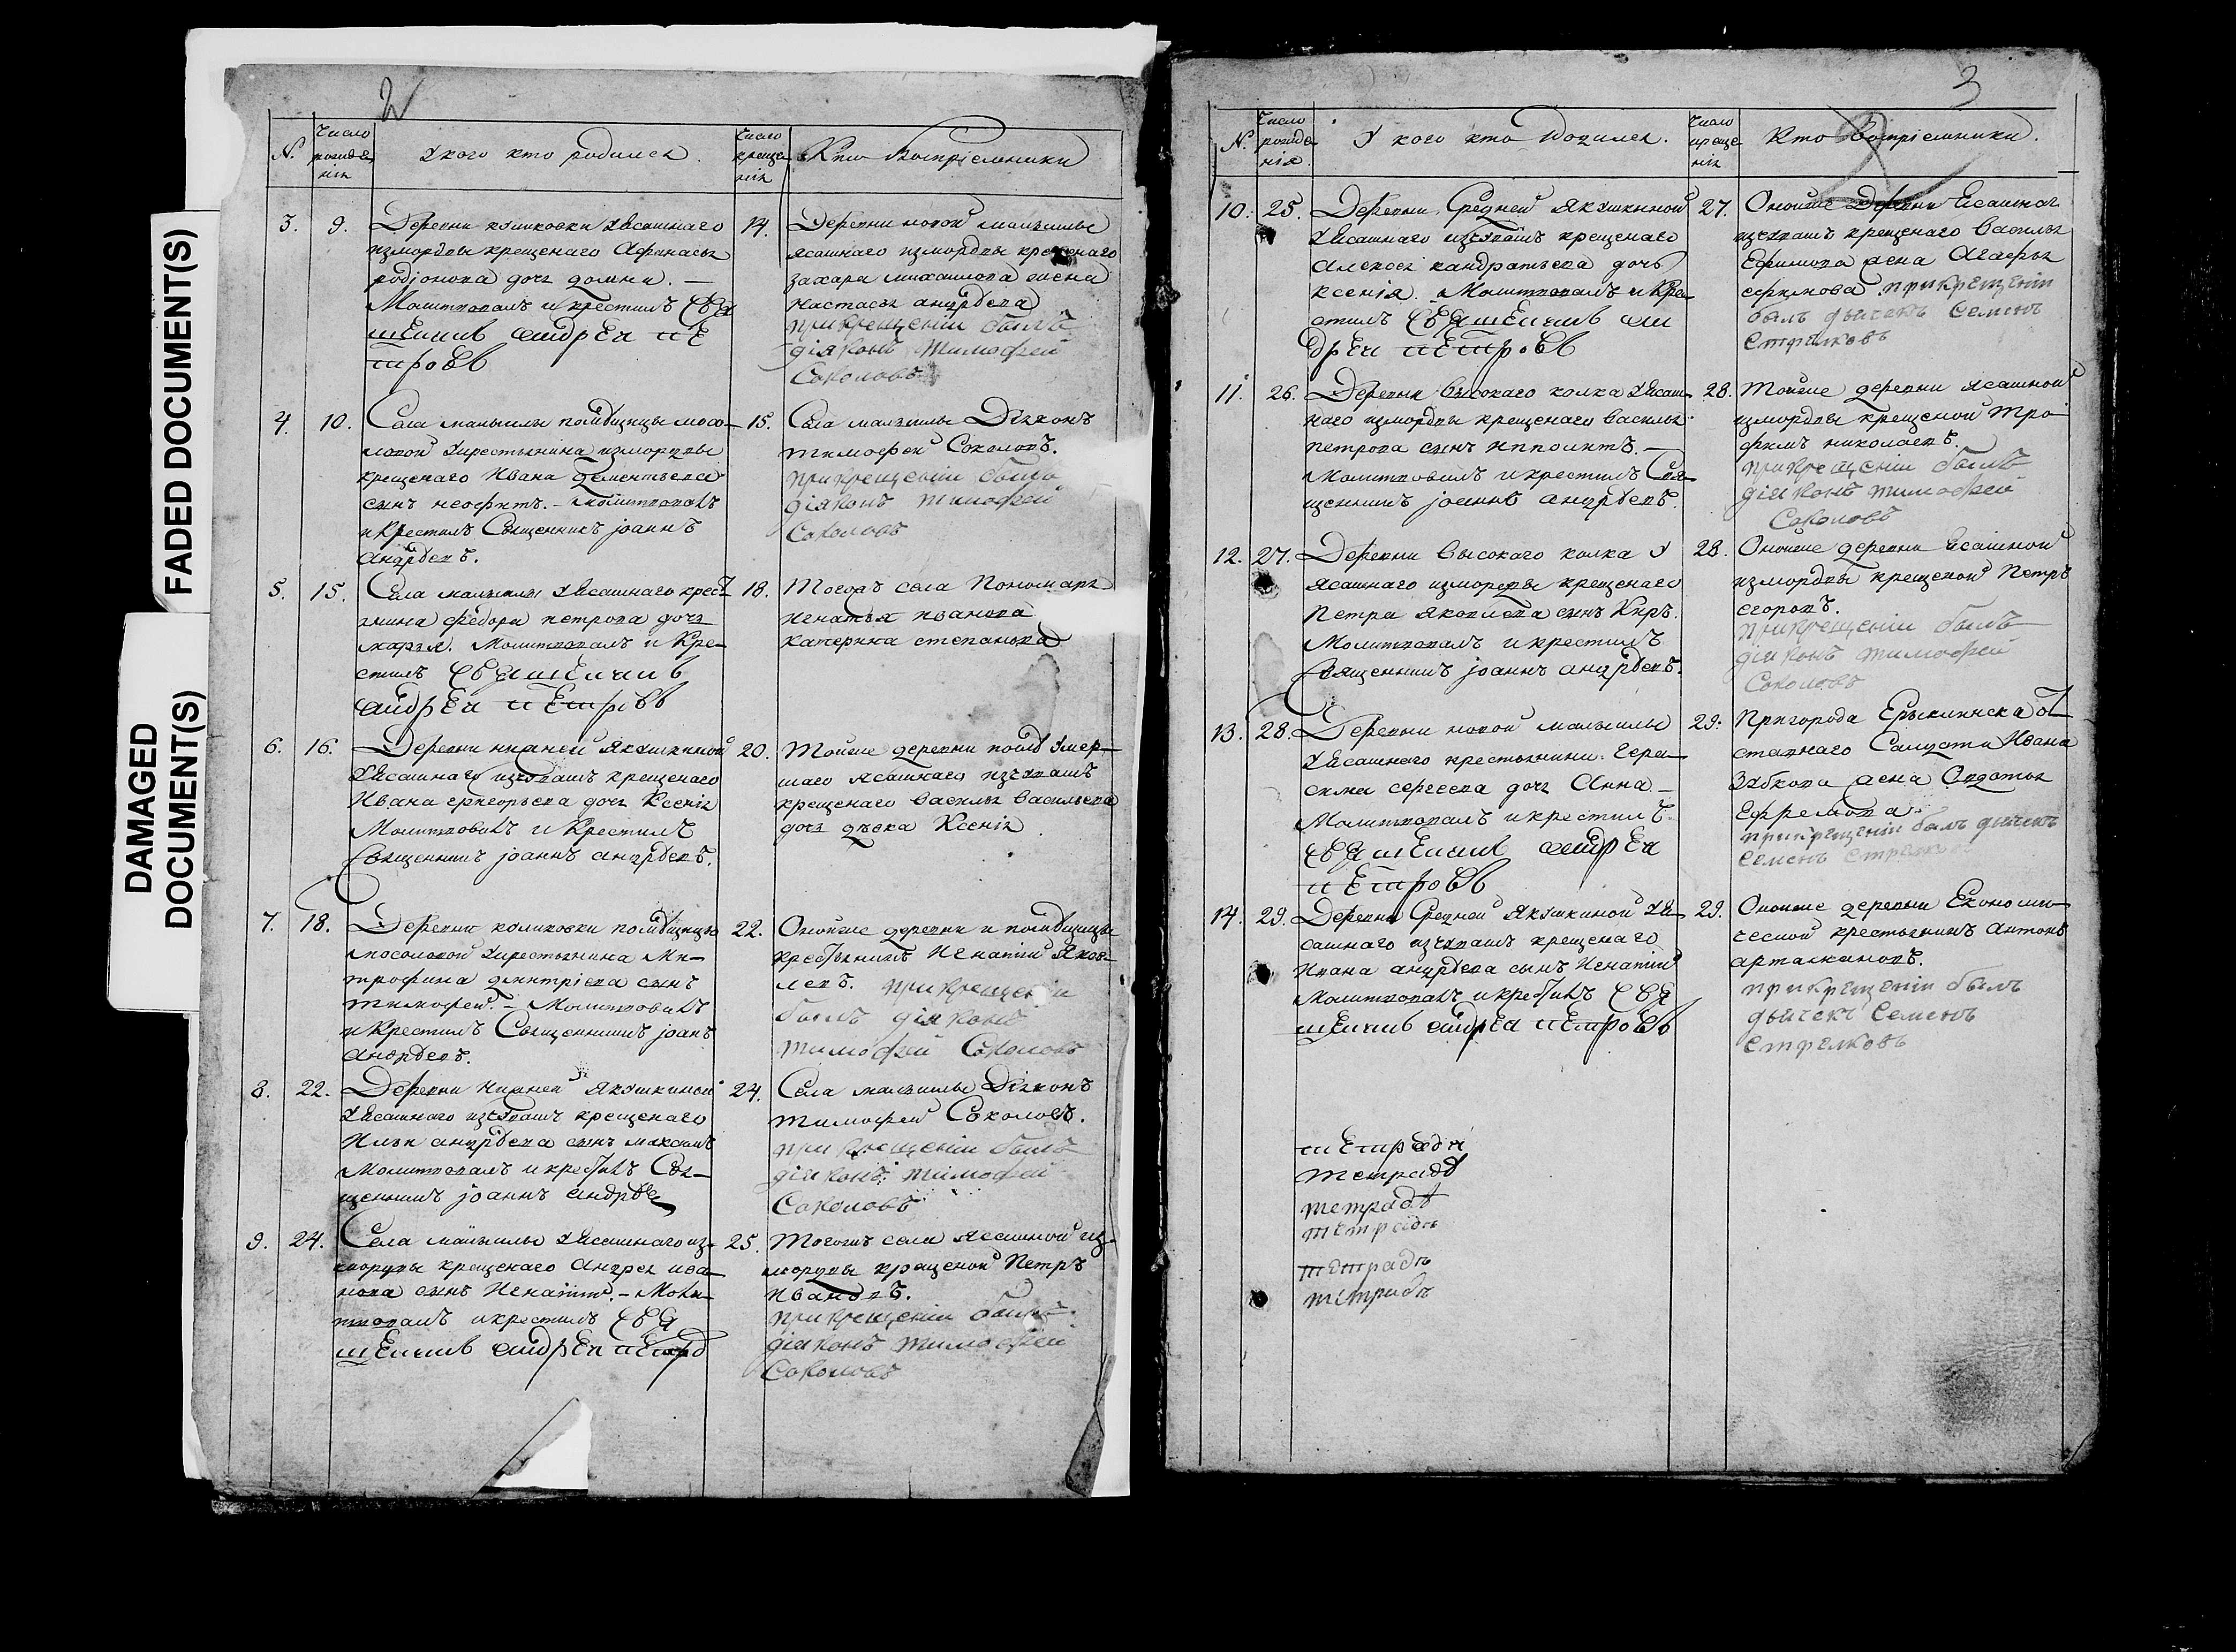 FADED DOCUMENT(S)
DAMAGED
DOCUMENT(S)
2
N.
Число
рожде
нія
У кого кто родился.
Число
креще
нія
Кто Воспріемники
3.
9.
Деревни куликовки Уясашнаго
измордвы крещенаго Афанасья
родіонова дочь домна. —
Молитвовалъ и крестилъ Свя
щенник андреи пе
тровъ
14.
Деревни новой малыклы
ясашнаго измордвы крещенаго
захара михаилова жена
настасья андрѣева
прикрещеніи былъ
діяконъ тимофей
Соколовъ
4.
10.
Села малыклы помѣщицы мосо-
ловой Укрестьянина измордвы
крещенаго Ивана дементьева
сынъ неофитъ. - молитвовалъ
и крестилъ Священникъ јоаннъ
андрѣевъ.
15.
Села малыклы Діяконъ
тимофеи Соколовъ.
прикрещеніи былъ
діяконъ тимофей
Соколовъ
5.
15.
Села малыклы Уясашнаго крест
янина федора петрова дочь
марья. Молитвовалъ и Кре-
стилъ Священник
андреи петровъ
18.
Тогожъ села Пономаря
игнатья иванова
катерина степанова
6.
16.
Деревни нижней Якушкиной
Уясашнаго изчувашъ крещенаго
Ивана григорьева дочь Ксенія
Молитвовалъ и Крестилъ
Священникъ јоаннъ андрѣевъ.
20.
Тойже деревни помѣ Умер-
шаго ясашнаго изчувашъ
крещенаго Василья Васильева
дочь дѣвка Ксенія.
7.
18.
Деревни куликовки помѣщицы
мосоловой Укрестьянина Ми-
трофана дмитріева сынъ
тимофей. - Молитвовалъ
и Крестилъ Священникъ јоанъ
андрѣевъ.
22.
Оноиже деревни и помѣщицы
крестьянинъ Игнатіи Яков-
левъ. прикрещеніи
былъ діяконъ
тимофей Соколовъ
8.
22.
Деревни Нижней Якушкиной
Уясашнаго изчувашъ крещенаго
Ильи андрѣева сынъ максимъ
Молитвовалъ и крестилъ Свя-
щенникъ јоаннъ андрѣе
24.
Села малыклы Діяконъ
тимофей Соколовъ.
при крещеніи былъ
діяконъ тимофей
Соколовъ
9.
24.
Села малыклы Уясашнаго из-
мордвы крещенаго Андрея ива-
нова сынъ Игнатіи. - Моли-
твовалъ икрестилъ Свя
щенник андреи петро
25.
Тогожъ села ясашной из-
мордвы крещеной Петръ
Ивановъ.
прикрещеніи былъ
діяконъ тимофей
Соколовъ
3
N.
Число
рожде-
нія.
У кого кто Родился.
Число
креще
нія
Кто Воспріемники.
10.
25.
Деревни Средней Якушкиной
Уясашнаго изчувашъ крещенаго
Алексея кандратьева дочь
Ксенія. Молитвовалъ и Кре-
стилъ Священник ан
дреи петровъ
27.
Оноиже Деревни Ясашнаг
изчувашъ крещенаго Василья
Ефимова жена Агафья
ефимова. прикрещеніи
былъ дьячекъ Семенъ
Стрѣлковъ
11.
26.
Деревни Высокаго колка Уясаш
наго измордвы крещенаго Василья
петрова сынъ ипполитъ. —
Молитвовалъ и крестилъ Свя-
щенникъ јоаннъ андрѣевъ.
28.
Тойже деревни ясашной
измордвы крещеной Тро
фимъ николаевъ.
прикрещеніи былъ
діяконъ тимофей
Соколовъ
12.
27.
Деревни Высокаго колка У
ясашнаго измордвы крещенаго
Петра Яковлева сынъ Киръ.
Молитвовалъ и крестилъ
Священникъ јоаннъ андрѣевъ.
28.
Оноиже деревни Ясашной
измордвы крещеной Петръ
егоровъ.
прикрещеніи былъ
діяконъ тимофей
Соколовъ
13.
28.
Деревни новой малыклы
Уясашнаго крестьянина Гера-
сима сергеева дочь Анна —
Молитвовалъ и крестилъ
Священник андреи
петровъ
29.
Пригорода Ерыклинска от
ставнаго Салдата Ивана
Зябкова жена Овдотья
Ефремова.
прикрещеніи былъ дьячекъ
Семенъ Стрелков
14.
29.
Деревни Средней Якушкиной Уя-
сашнаго изчувашъ крещенаго
Ивана андрѣева сынъ Игнатіи
Молитвовалъ и крестилъ Свя
щенник андреи петровъ
29.
Оноиже деревни Економи-
ческой крестьянинъ антонъ
артамановъ.
прикрещеніи былъ
дьячекъ Семенъ
Стрелковъ
тетради
тетрадѣ
тетрадь
тетрадь
тетрадь
тетрадь